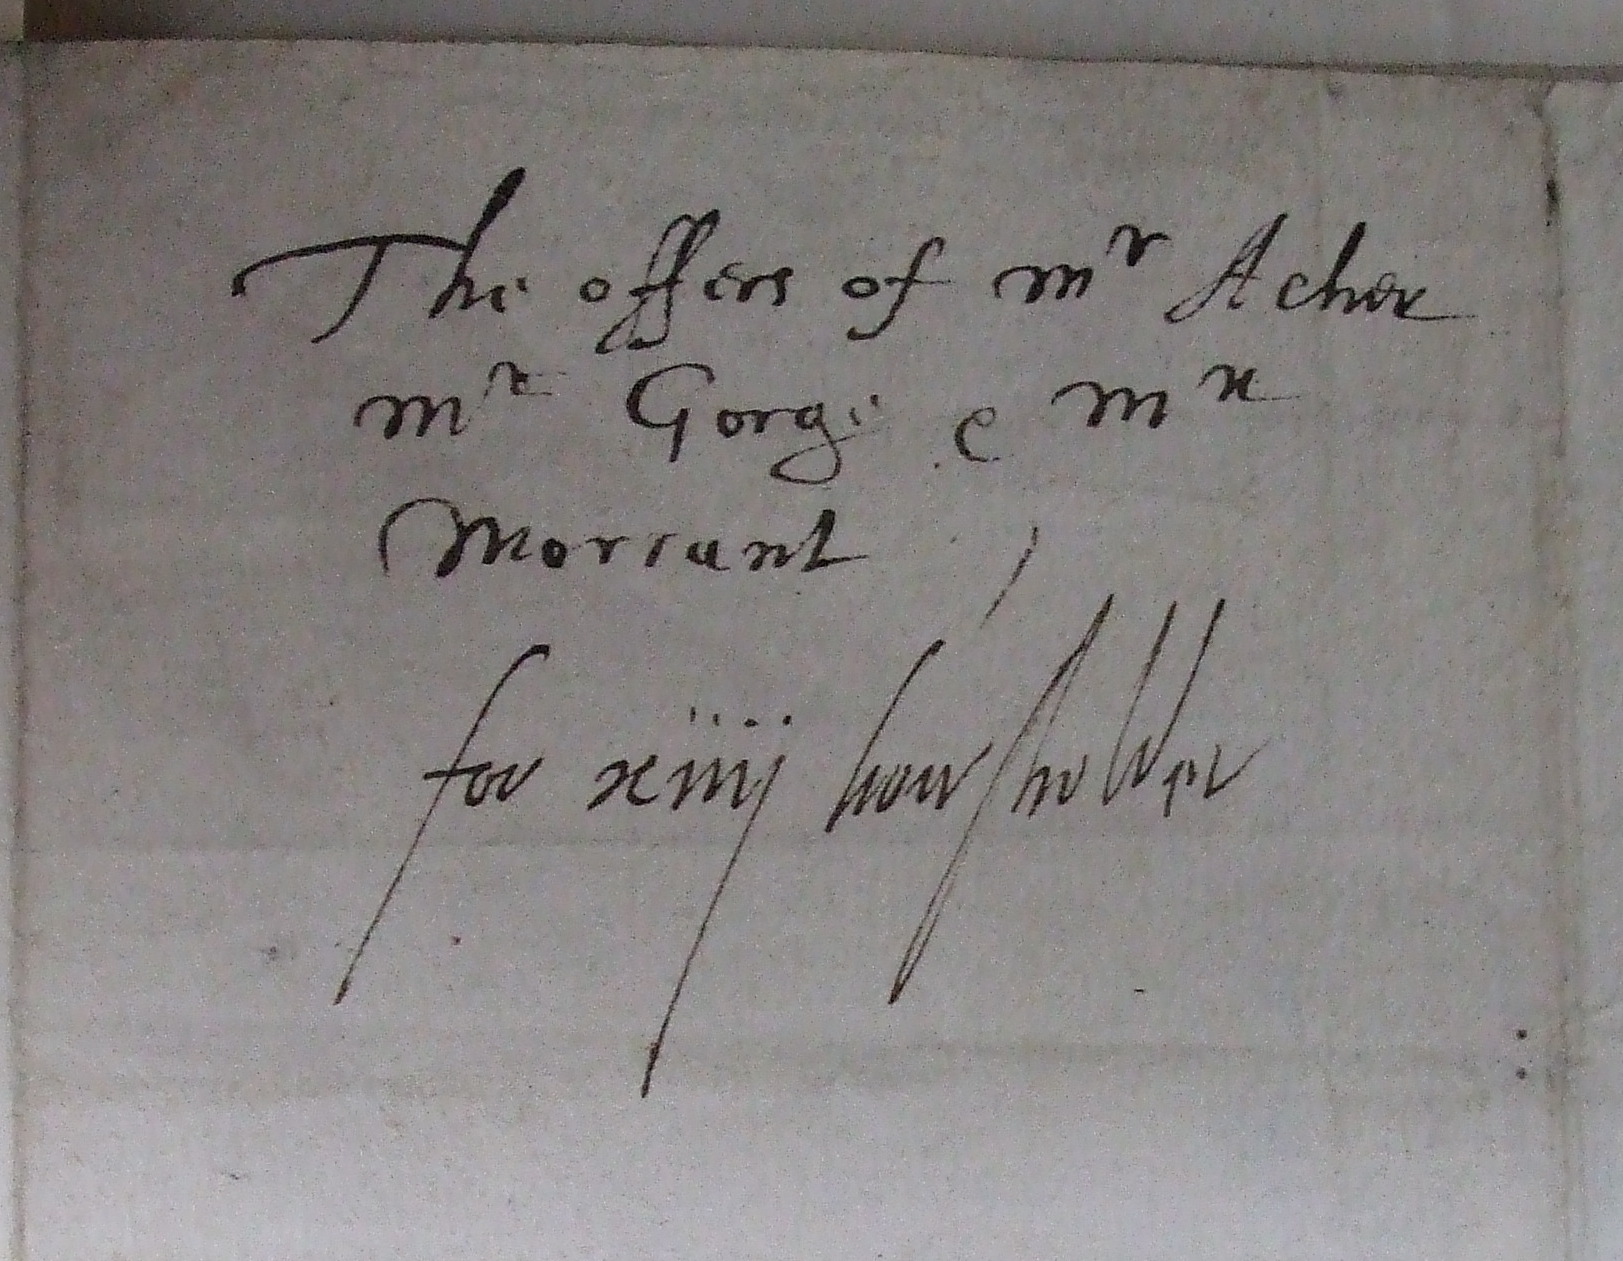 The offers of mr Acher
mr Gorge & mr
Morrant
for xiiij howsholder